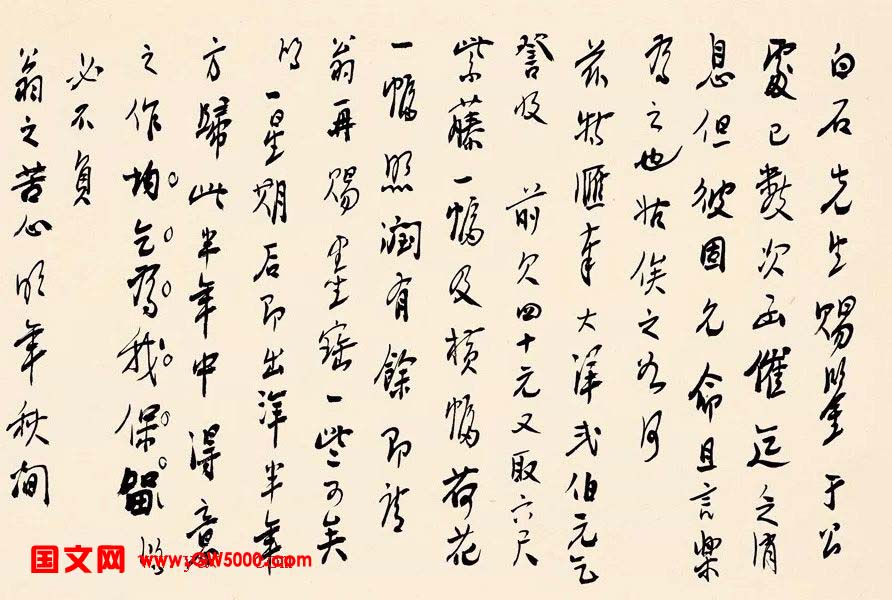 白石先生賜鑒于公
處已數次函催迄乏消
息但彼固允命且言樂
為之也姑俟之為何
茲特匯奉大洋弍伯元乞
詧收 前欠四十元又取六尺
紫藤一幅及橫幅荷花
一幅照潤有餘即請
翁再賜畫蜜一些可矣
弟一星期后即出洋半年
方歸此半年中得意
之作均乞為我保留
必不負
翁之苦心明年秋間
国文网 www.yGW5000.com